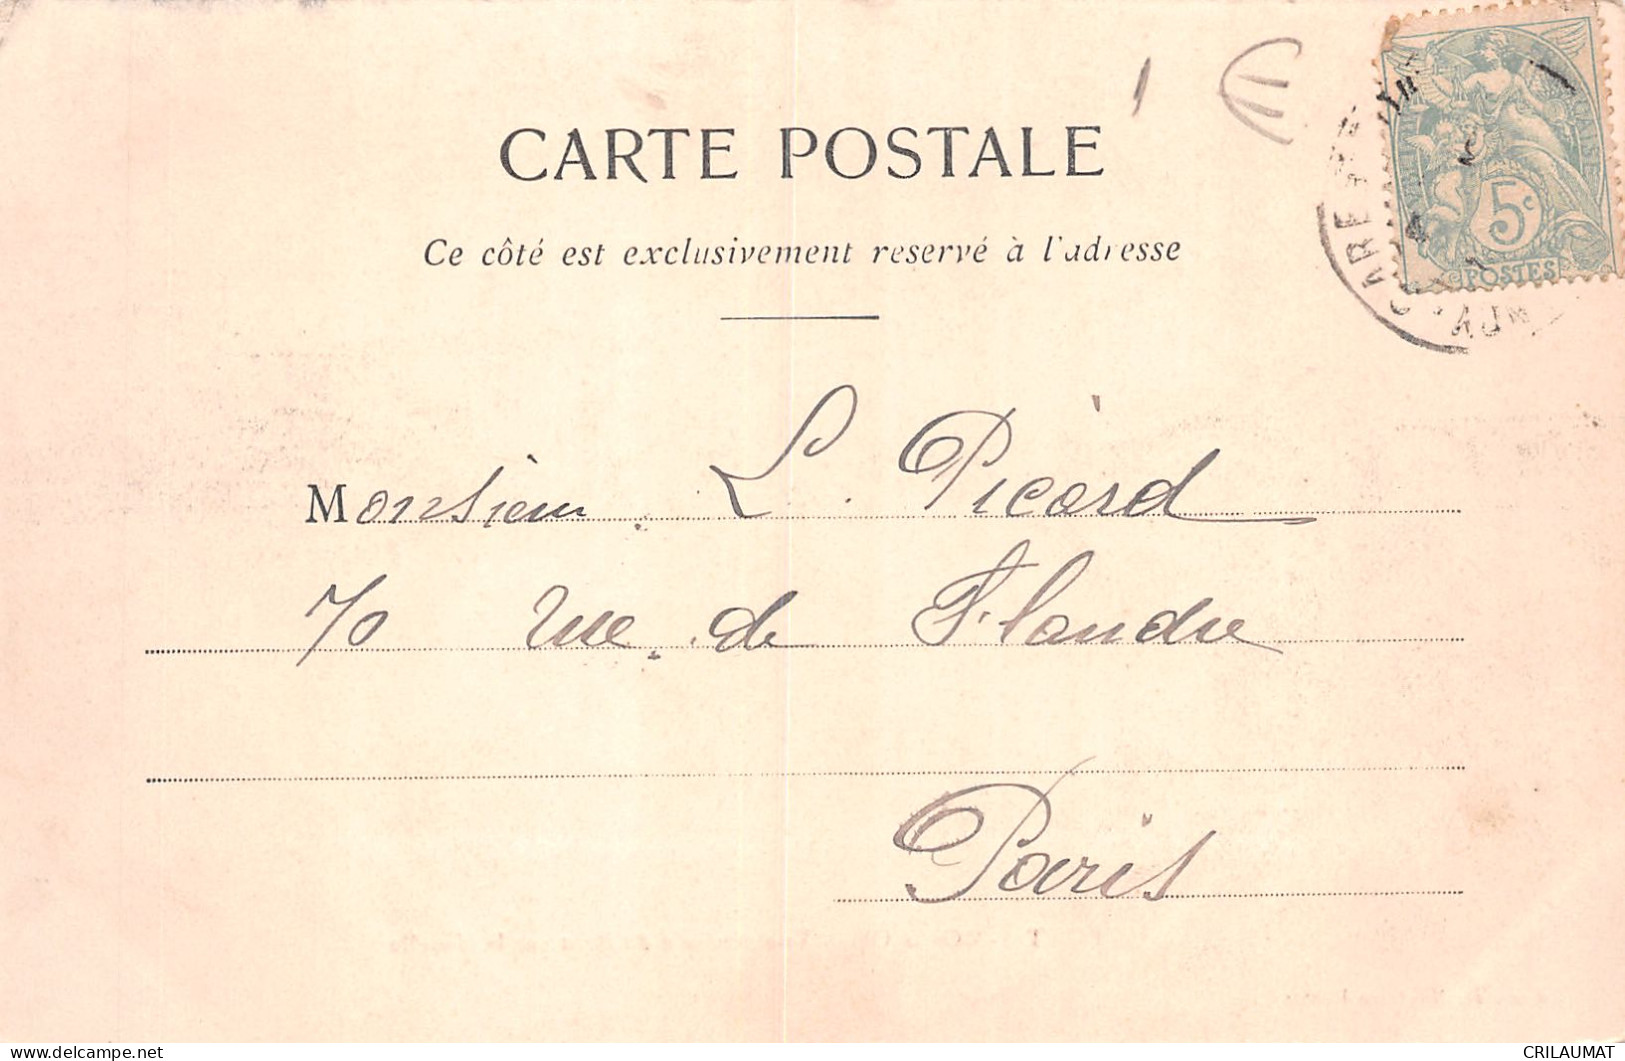 CARTE POSTALE
Ce côté est exclusivement reservé à l'adresse
5c
POSTES
GARE
Monsieur L. Picard
70 rue de Flandre
Paris
CRILAUMAT